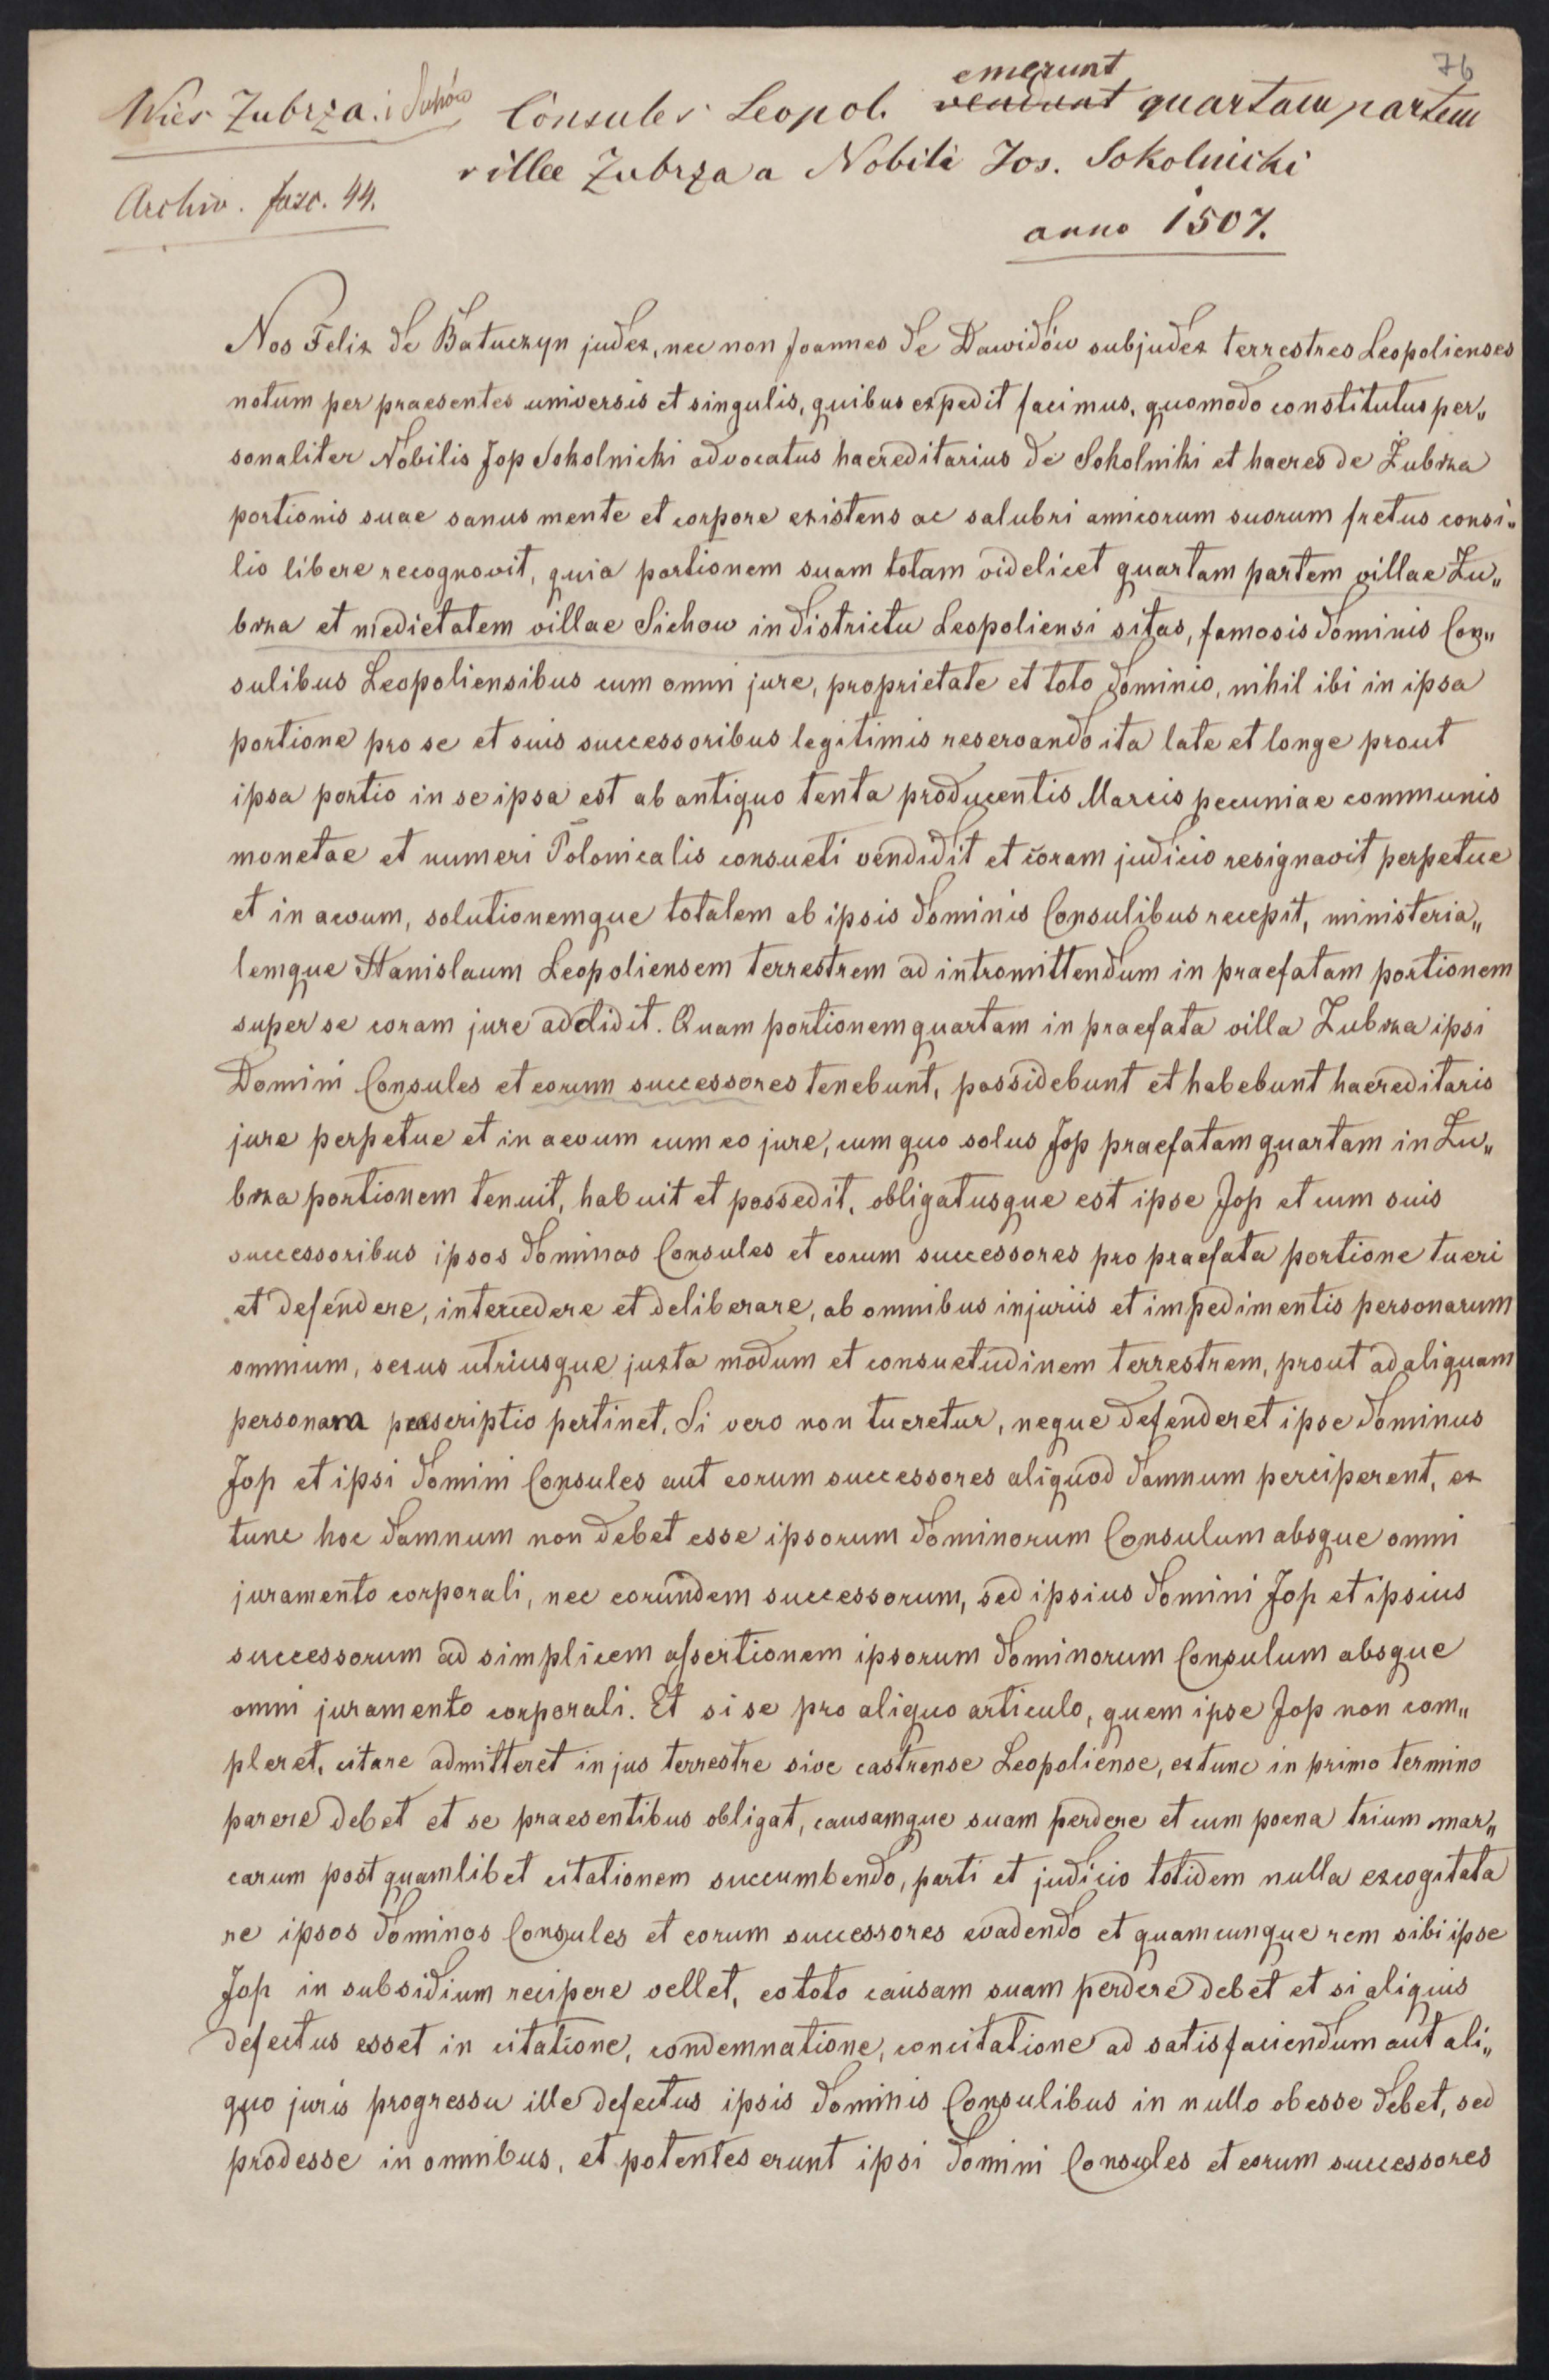 76
Wieś Zubrza. i Sichów
Archiv. fasc. 44.
emerunt
Consules Leopol. vendunt quartam partem
villae Zubrza a Nobili Jos. Sokolnicki
anno 1507.
Nos Felix de Batuczyn judex, nec non Joannes de Dawidów subjudex terrestres Leopolienses
notum per praesentes universis et singulis, quibus expedit facimus, quomodo constitutus per„
sonaliter Nobilis Jop Sokolnicki advocatus haereditarius de Sokolniki et haeres de Żubrza
portionis suae sanus mente et corpore existens ac salubri amicorum suorum fretus consi„
lio libere recognovit, quia portionem suam totam videlicet quartam partem villae Zu„
brza et medietatem villae Sichow in districtu Leopoliensi sitas, famosis dominis Con„
sulibus Leopoliensibus cum omni jure, proprietate et toto dominio, nihil ibi in ipsa
portione pro se et suis successoribus legitimis reservando ita late et longe prout
ipsa portio in se ipsa est ab antiquo tenta producentis Marcis pecuniae communis
monetae et numeri Polonicalis consueti vendidit et coram judicio resignavit perpetue
et in aevum, solutionemque totalem ab ipsis dominis Consulibus recepit, ministeria„
lemque Stanislaum Leopoliensem terrestrem ad intromittendum in praefatam portionem
super se coram jure addidit. Quam portionem quartam in praefata villa Zubrza ipsi
Domini Consules et eorum successores tenebunt, possidebunt et habebunt haereditario
jure perpetue et in aevum cum eo jure, cum quo solus Jop praefatam quartam in Zu„
brza portionem tenuit, habuit et possedit, obligatusque est ipse Jop et cum suis
successoribus ipsos dominos Consules et eorum successores pro praefata portione tueri
et defendere, intercedere et deliberare, ab omnibus injuriis et impedimentis personarum
omnium, sexus utriusque juxta modum et consuetudinem terrestrem, prout ad aliquam
personam praescriptio pertinet. Si vero non tueretur, neque defenderet ipse dominus
Jop et ipsi domini Consules aut eorum successores aliquod damnum perciperent, ex
tunc hoc damnum non debet esse ipsorum dominorum Consulum absque omni
juramento corporali, nec eorundem successorum, sed ipsius domini Jop et ipsius
successorum ad simplicem assertionem ipsorum dominorum Consulum absque
omni juramento corporali. Et si se pro aliquo articulo, quem ipse Jop non com„
pleret, citare admitteret in jus terrestre sive castrense Leopoliense, extunc in primo termino
parere debet et se praesentibus obligat, causamque suam perdere et cum poena trium mar„
carum post quamlibet citationem succumbendo, parti et judicio totidem nulla excogitata
re ipsos dominos Consules et eorum successores evadendo et quamcunque rem sibi ipse
Jop in subsidium recipere vellet, eo toto causam suam perdere debet et si aliquis
defectus esset in citatione, condemnatione, concitatione ad satisfaciendum aut ali„
quo juris progressu ille defectus ipsis dominis Consulibus in nullo obesse debet, sed
prodesse in omnibus, et potentes erunt ipsi domini Consules et eorum successores